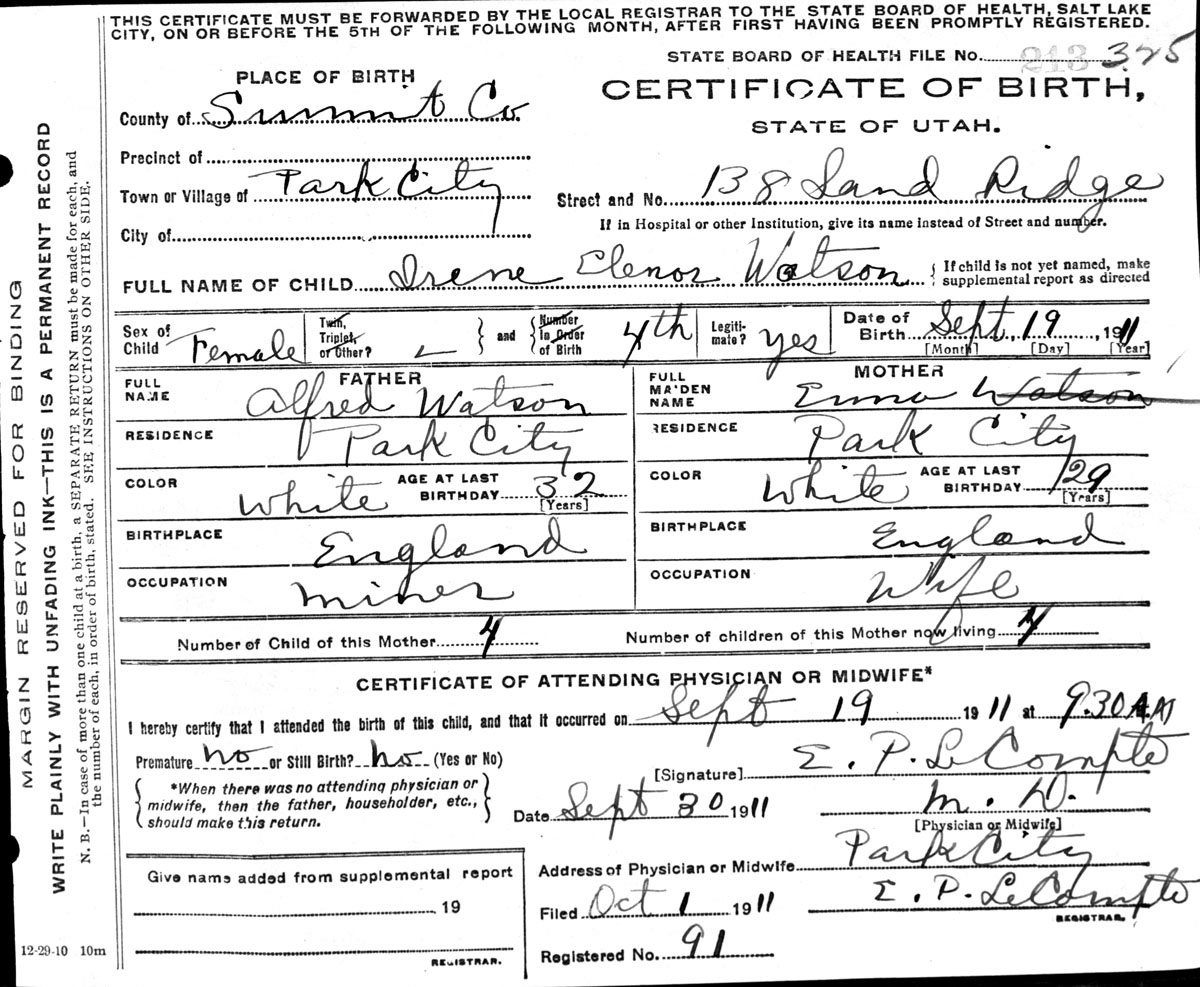 THIS CERTIFICATE MUST BE FORWARDED BY THE LOCAL REGISTRAR TO THE STATE BOARD OF HEALTH, SALT LAKE
CITY, ON OR BEFORE THE 5TH OF THE FOLLOWING MONTH, AFTER FIRST HAVING BEEN PROMPTLY REGISTERED.
STATE BOARD OF HEALTH FILE No. 213 325
PLACE OF BIRTH
CERTIFICATE OF BIRTH,
STATE OF UTAH.
County of Summit Co.
Precinct of
Town or Village of Park City
Street and No. 138 Sand Ridge
If in Hospital or other Institution, give its name instead of Street and number.
City of
FULL NAME OF CHILD Irene Elenor Watson { If child is not yet named, make
supplemental report as directed
Sex of Child Female
Twin, Triplet, or Other?
and
Number In Order of Birth 4th
Legiti- mate? yes
Date of Birth Sept, 19, 1911
[Month] [Day] [Year]
FATHER
FULL NAME Alfred Watson
RESIDENCE Park City
COLOR White AGE AT LAST BIRTHDAY 32
[Years]
BIRTHPLACE England
OCCUPATION Miner
MOTHER
FULL MAIDEN NAME Emma Watson
RESIDENCE Park City
COLOR White AGE AT LAST BIRTHDAY 29
[Years]
BIRTHPLACE England
OCCUPATION Wife
Number of Child of this Mother 4 Number of children of this Mother now living 4
CERTIFICATE OF ATTENDING PHYSICIAN OR MIDWIFE*
I hereby certify that I attended the birth of this child, and that it occurred on Sept 19 1911 at 9.30 A M
Premature no or Still Birth? no (Yes or No)
[Signature] E. P. LeCompte
*When there was no attending physician or
midwife, then the father, householder, etc.,
should make this return.
Date Sept 30 1911 M. D.
[Physician or Midwife]
Address of Physician or Midwife Park City
Filed Oct 1 1911 E. P. LeCompte
REGISTRAR.
Registered No. 91
Give name added from supplemental report
19
REGISTRAR.
12-29-10 10m
MARGIN RESERVED FOR BINDING
WRITE PLAINLY WITH UNFADING INK—THIS IS A PERMANENT RECORD
N. B.—In case of more than one child at a birth, a SEPARATE RETURN must be made for each, and
the number of each, in order of birth, stated. SEE INSTRUCTIONS ON OTHER SIDE.